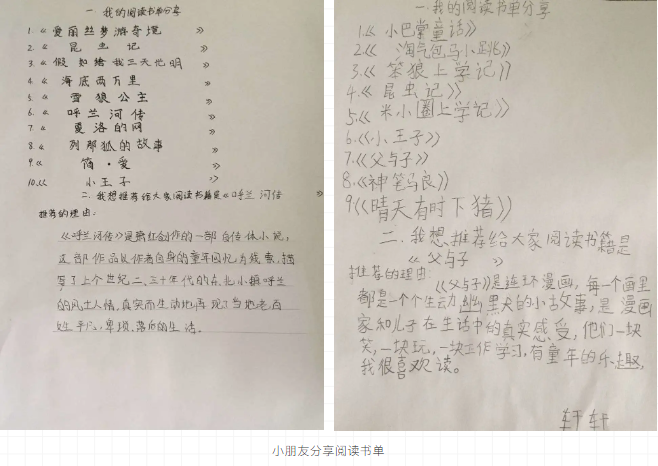 一 我的阅读书单分享
1.《爱丽丝梦游奇境》
2.《昆虫记》
3.《假如给我三天光明》
4.《海底两万里》
5.《雪狼公主》
6.《呼兰河传》
7.《夏洛的网》
8.《列那狐的故事》
9.《简·爱》
10.《小王子》
二.我想推荐给大家阅读书籍是《呼兰河传》
推荐的理由:
《呼兰河传》是萧红创作的一部自传体小说,
这部作品以作者自身的童年回忆为线索,描
写了上个世纪二、三十年代的东北小镇呼兰
的风土人情,真实而生动地再现了当地老百
姓平凡、卑琐、落后的生活。
一.我的阅读书单分享
1.《小巴掌童话》
2.《淘气包马小跳》
3.《笨狼上学记》
4.《昆虫记》
5.《米小圈上学记》
6.《小王子》
7.《父与子》
8.《神笔马良》
9《晴天有时下猪》
二.我想推荐给大家阅读书籍是
《父与子》
推荐的理由:
《父与子》是连环漫画,每一个画里
都是一个个生动幽黑犬的小故事,是漫画
家和儿子在生活中的真实感受,他们一块
笑,一块玩,一块工作学习,有童年的乐趣,
我很喜欢读。
轩轩
小朋友分享阅读书单